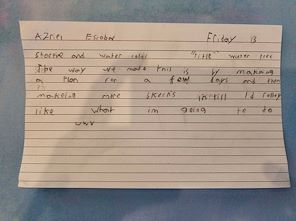 Azriel Escobar Friday 13
Starter and water color "title" water tree
The way we made this is by making
a plan for a few days and then
making more skechs intill I'd rolley
like what im going to do